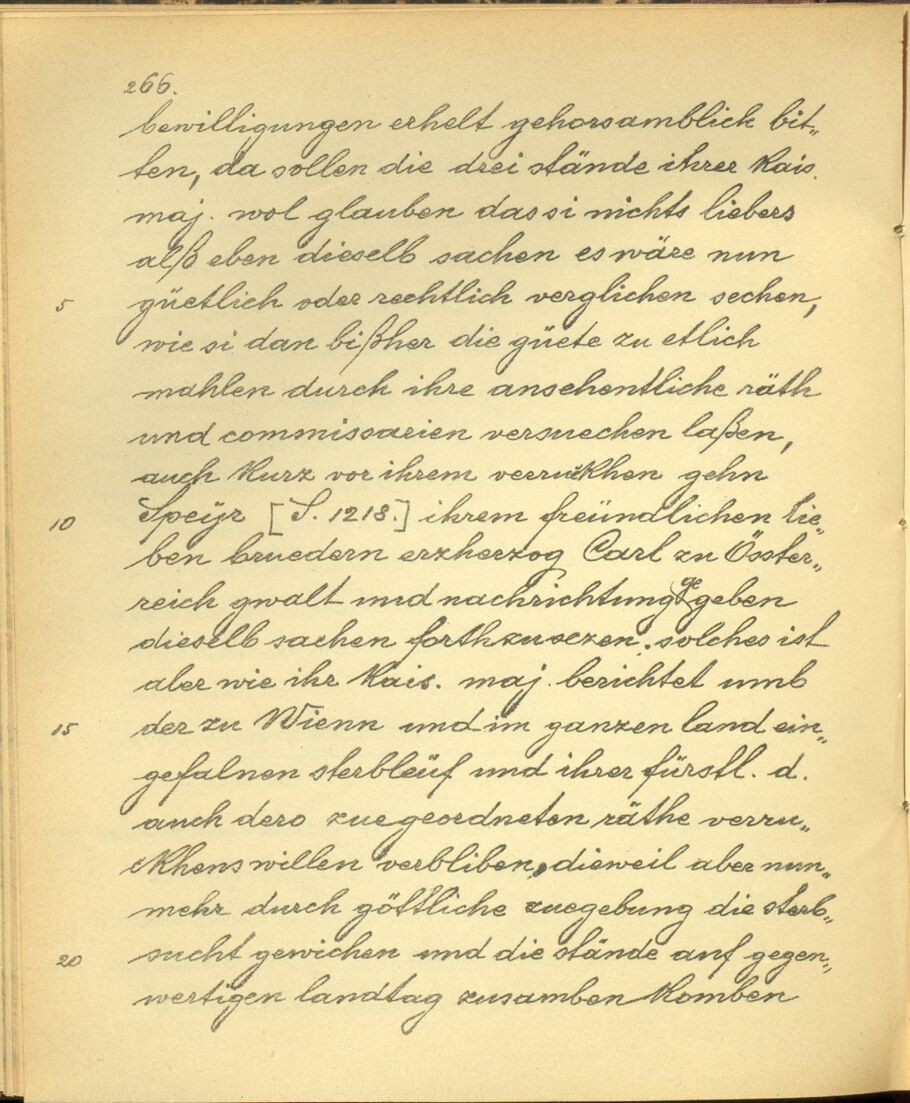 266.
bewilligungen erhelt gehorsamblich bit„
ten, da sollen die drei stände ihrer Kais.
maj. wol glauben das si nichts liebers
alß eben dieselb sachen es wäre nun
5 güetlich oder rechtlich verglichen sechen,
wie si dan bißher die güete zu etlich
mahlen durch ihre ansehentliche räth
und commissarien versuechen laßen,
auch Kurz vor ihrem verruckhen gehn
10 Speÿr [S. 1218.] ihrem freündlichen lie„
ben bruedern erzherzog Carl zu Össter„
reich gwalt und nachrichtung gegeben
dieselb sachen forthzusezen. solches ist
aber wie ihr Kais. maj. berichtet umb
15 der zu Wienn und im ganzen land ein„
gefalnen sterbleüf und ihrer fürstl. d.
auch dero zuegeordneten räthe verru„
ckhens willen verbliben, dieweil aber nun„
mehr durch göttliche zuegebung die sterb„
20 sucht gewichen und die stände auf gegen„
wertigen landtag zusamben Komben